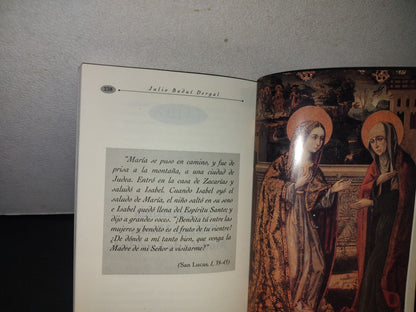 238
Julio Badui Dergal
"María se puso en camino, y fue de
prisa a la montaña, a una ciudad de
Judea. Entró en la casa de Zacarías y
saludó a Isabel. Cuando Isabel oyó el
saludo de María, el niño saltó en su seno
e Isabel quedó llena del Espíritu Santo; y
dijo a grandes voces. "¡Bendita tú entre las
mujeres y bendito es el fruto de tu vientre!
¿De dónde a mí tanto bien, que venga la
Madre de mi Señor a visitarme?"
(San Lucas, 1, 39-43)